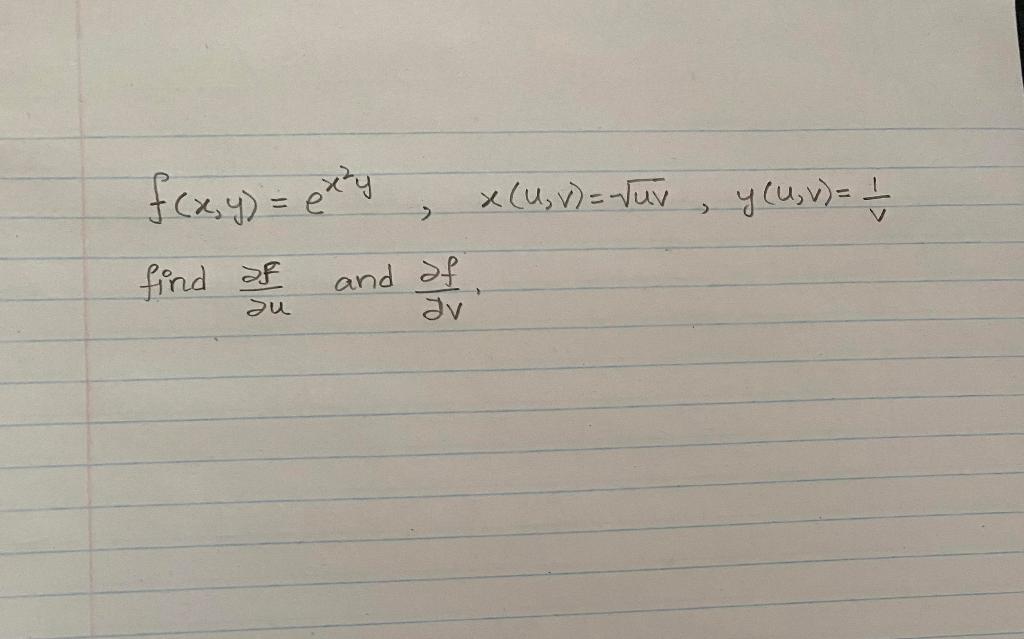 f(x,y) = e^{x²y} , x(u,v) = √uv , y(u,v) = 1/v
find ∂f/∂u and ∂f/∂v.